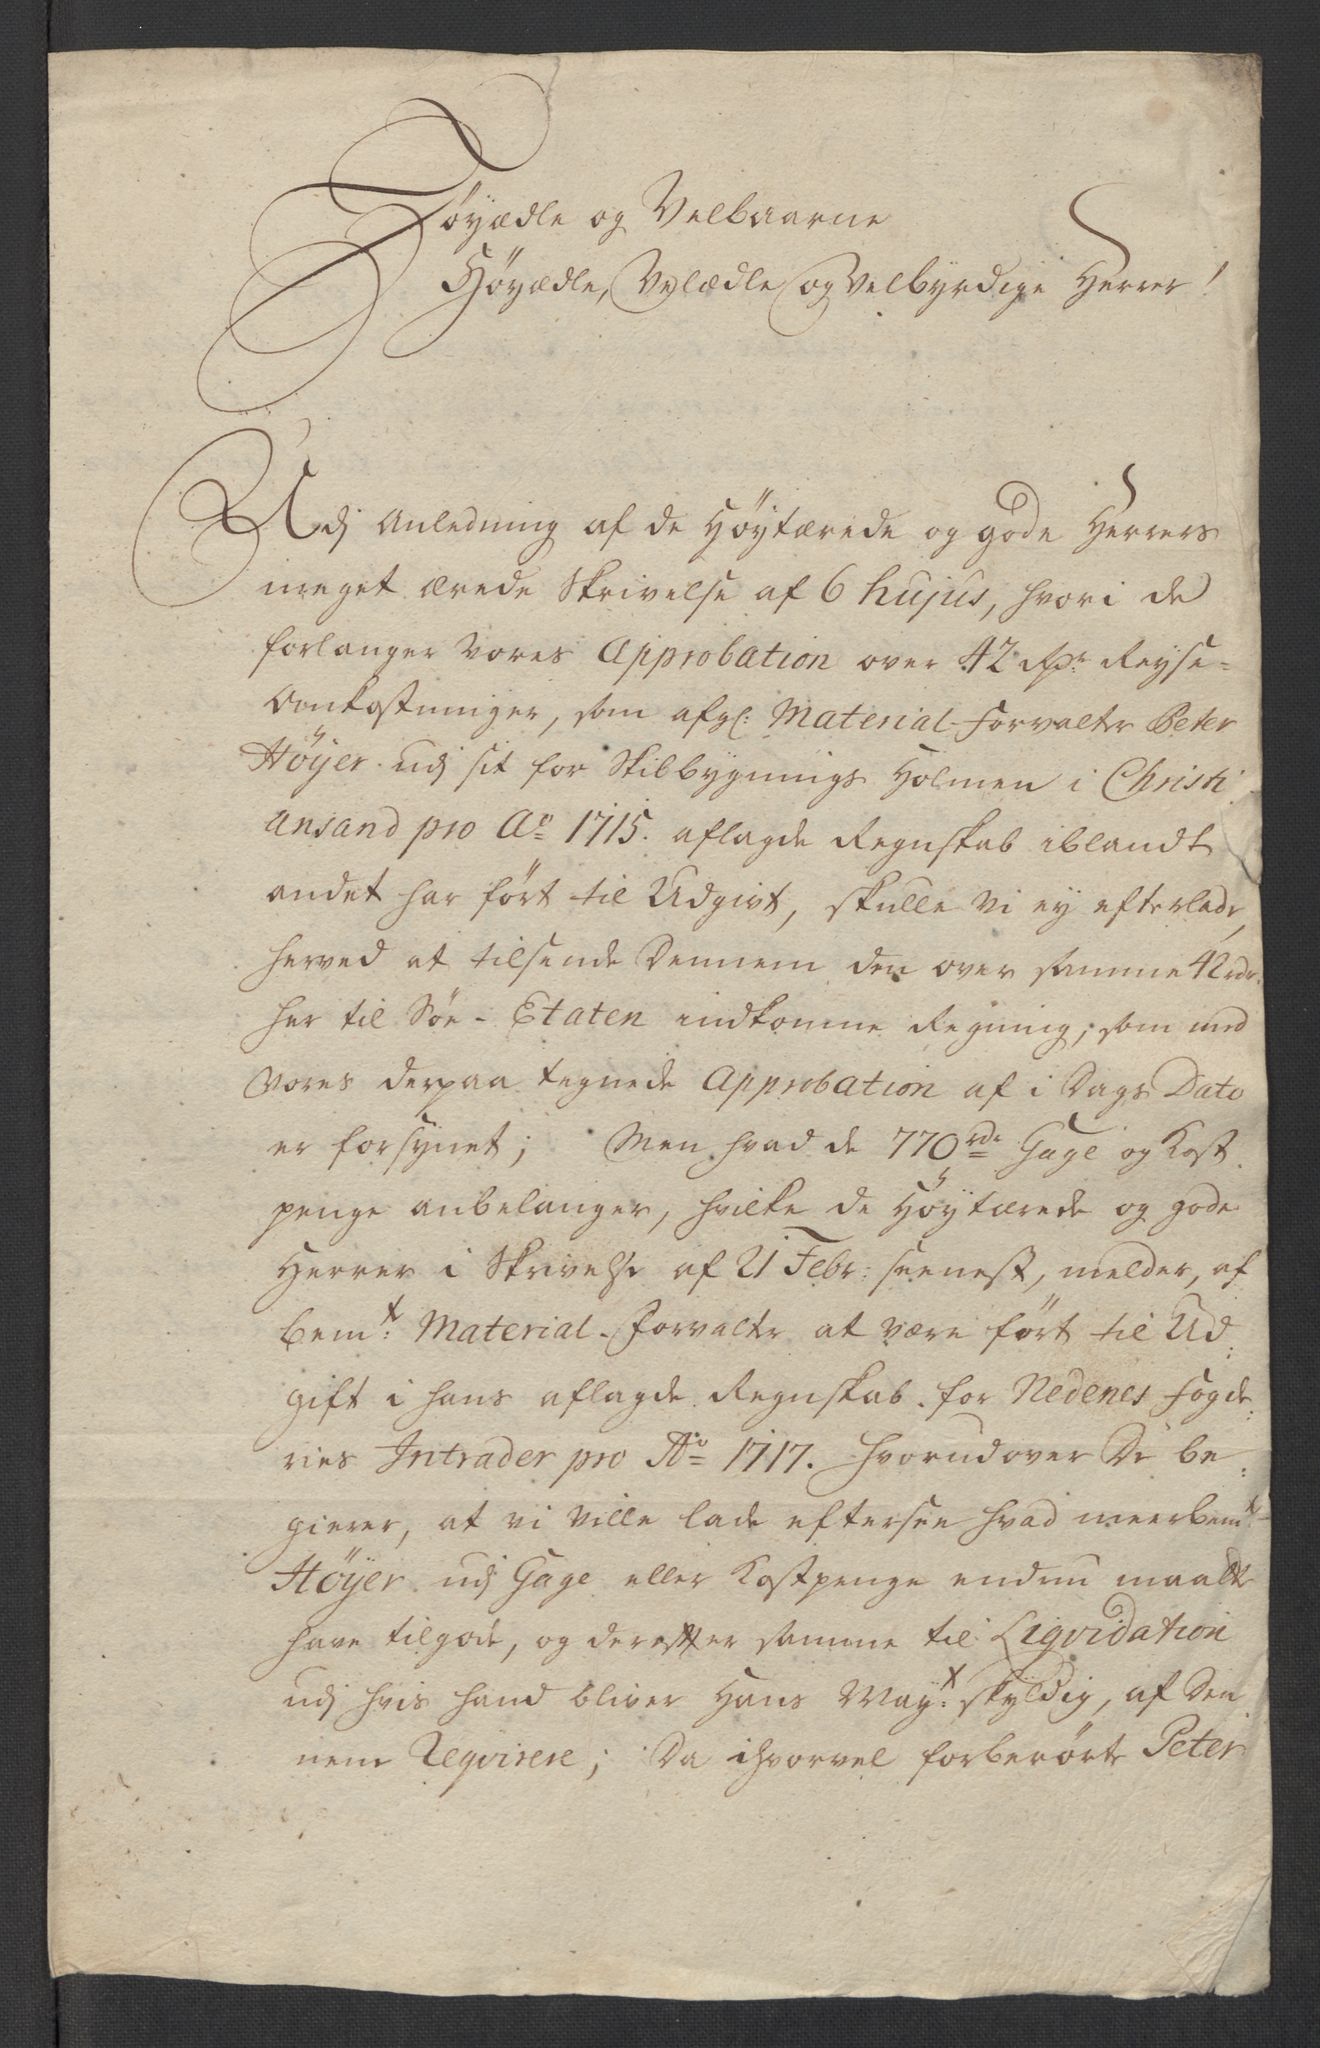 Høyædle og Velbaarne
Høyædle, Velædle og Velbyrdige Herrer!
Udj Anledning af de Høytærede og gode Herrers
meget ærede Skrivelse af 6 hujus, hvori de
forlanger vores Approbation over 42 Rdr Reyse-
Omkostninger, som afgl: Material-Forvalter Peter
Høyer udj sit for Skibbygnings Holmen i Christi
ansand pro Ao 1715. aflagde Regnskab iblandt
andet har ført til Udgivt, skulle vi ey efterlade,
herved at tilsende Dennem den over samme 42 rdr.
her til Søe-Etaten indkomne Regning, som med
vores derpaa tegnede Approbation af i Dags Dato
er forsynet; Men hvad de 770 rdr Gage og Kost
penge anbelanger, hvilke de Høytærede og gode
Herrer i Skrivelse af 21 Febr: seenest, melder, af
bemt: Material-Forvalter at være ført til Ud:
gift i hans aflagde Regnskab for Nedenes Fogde:
ries Intrader pro Ao 1717. hvorudover De be:
gierer, at vi ville lade eftersee hvad meerbemt
Høyer udj Gage eller Kostpenge endnu maatte
have tilgode, og derefter samme til Liqvidation
udj hvis hand bliver Hans Mayt: skyldig, af Den
nem Reqvirere; Da ihvorvel forberørte Peter